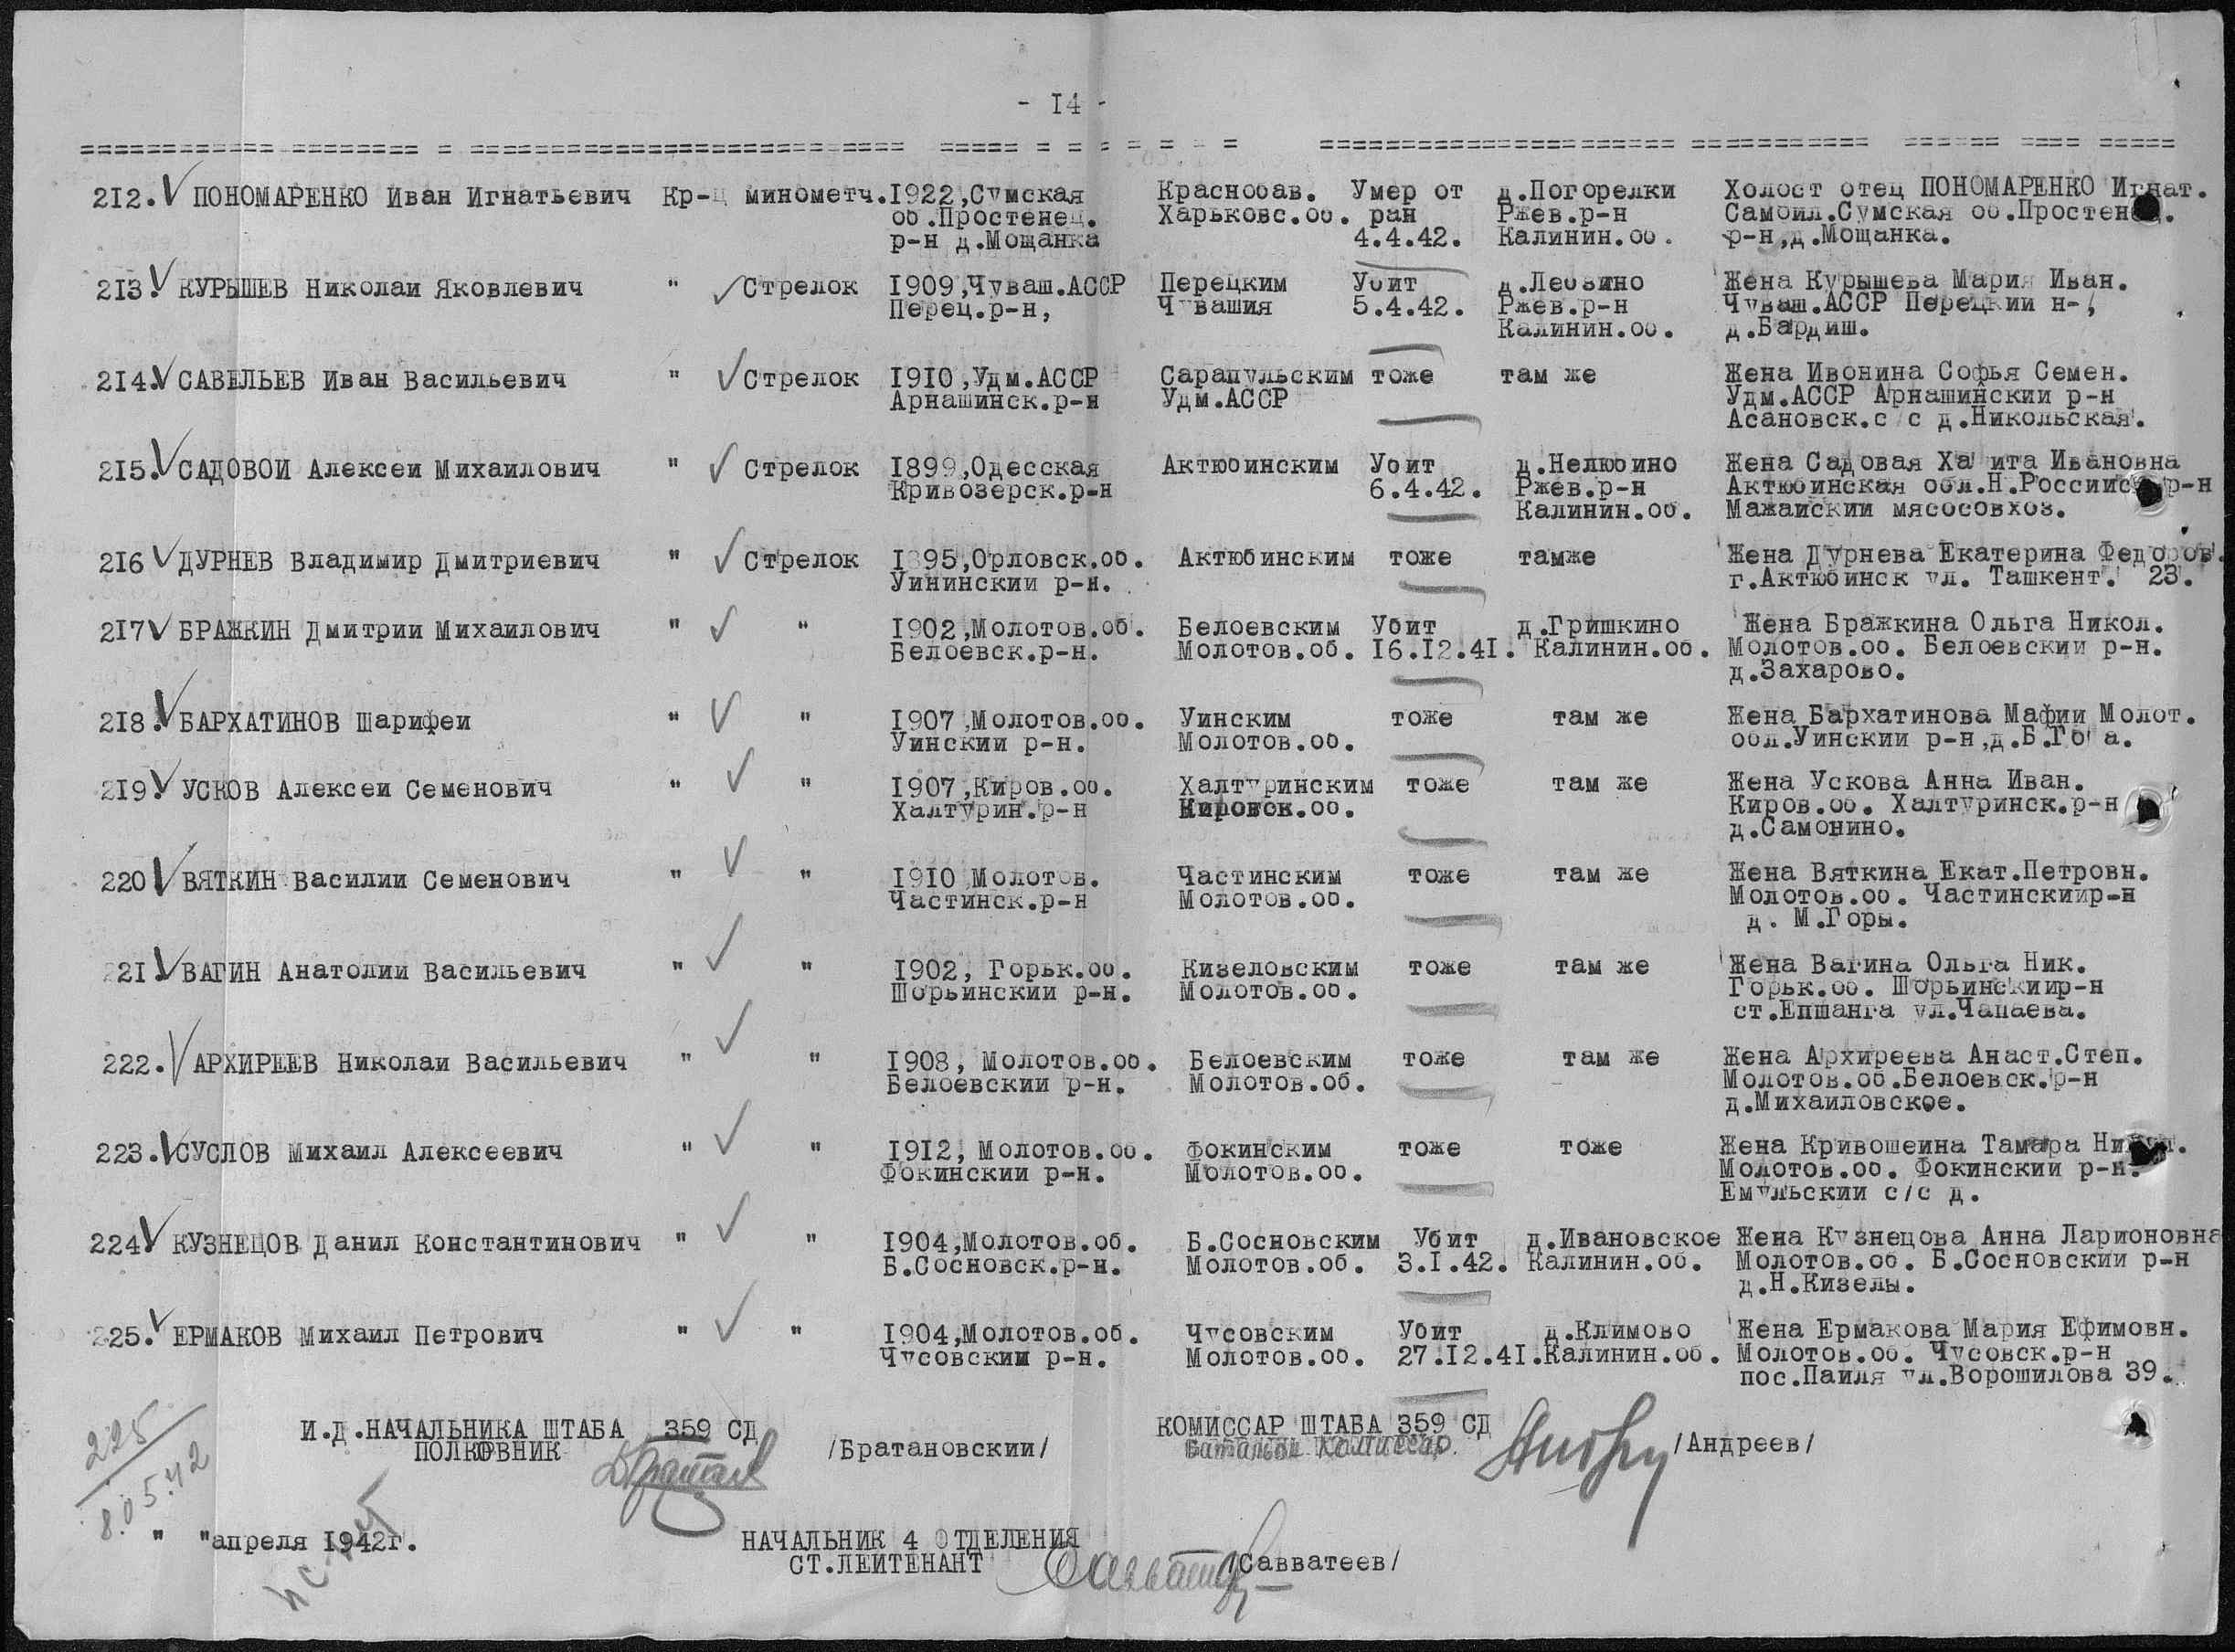 - 14 -
212. ПОНОМАРЕНКО Иван Игнатьевич Кр-ц минометч. 1922,Сумская Краснооав. Умер от д.Погорелки Холост отец ПОНОМАРЕНКО Игнат.
об.Простенец. Харьковс.об. ран Ржев.р-н Самоил.Сумская об.Простенец.
р-н д.Мощанка 4.4.42. Калинин.об. р-н,д.Мощанка.
213. КУРЫШЕВ Николаи Яковлевич " Стрелок 1909,Чуваш.АССР Перецким Убит д.Лебзино Жена Курышева Мария Иван.
Перец.р-н, Чувашия 5.4.42. Ржев.р-н Чуваш.АССР Перецкии н-,
Калинин.об. д.Бардиш.
214. САВЕЛЬЕВ Иван Васильевич " Стрелок 1910,Удм.АССР Сарапульским тоже там же Жена Ивонина Софья Семен.
Арнашинск.р-н Удм.АССР Удм.АССР Арнашинскии р-н
Асановск.с/с д.Никольская.
215. САДОВОИ Алексеи Михаилович " Стрелок 1899,Одесская Актюбинским Убит д.Нелюбино Жена Садовая Ха ита Ивановна
Кривозерск.р-н 6.4.42. Ржев.р-н Актюбинская обл.Н.Россииск р-н
Калинин.об. Мажаискии мясосовхоз.
216 ДУРНЕВ Владимир Дмитриевич " Стрелок 1895,Орловск.об. Актюбинским тоже тамже Жена Дурнева Екатерина Федоров.
Уининскии р-н. г.Актюбинск ул. Ташкент. 23.
217 БРАЖКИН Дмитрии Михаилович " " 1902,Молотов.об. Белоевским Убит д.Гришкино Жена Бражкина Ольга Никол.
Белоевск.р-н. Молотов.об. 16.12.41. Калинин.об. Молотов.об. Белоевскии р-н.
д.Захарово.
218. БАРХАТИНОВ Шарифеи " " 1907,Молотов.об. Уинским тоже там же Жена Бархатинова Мафии Молот.
Уинскии р-н. Молотов.об. обл.Уинскии р-н,д.Б.Го а.
219. УСКОВ Алексеи Семенович " " 1907,Киров.об. Халтуринским тоже там же Жена Ускова Анна Иван.
Халтурин.р-н Кировск.об. Киров.об. Халтуринск.р-н
д.Самонино.
220 ВЯТКИН Василии Семенович " " 1910 Молотов. Частинским тоже там же Жена Вяткина Екат.Петровн.
Частинск.р-н Молотов.об. Молотов.об. Частинскиир-н
д. М.Горы.
221. ВАГИН Анатолии Васильевич " " 1902, Горьк.об. Кизеловским тоже там же Жена Вагина Ольга Ник.
Шорьинскии р-н. Молотов.об. Горьк.об. Шорьинскиир-н
ст.Епшанга ул.Чапаева.
222. АРХИРЕЕВ Николаи Васильевич " " 1908, Молотов.об. Белоевским тоже там же Жена Архиреева Анаст.Степ.
Белоевскии р-н. Молотов.об. Молотов.об.Белоевск.р-н
д.Михаиловское.
223. СУСЛОВ Михаил Алексеевич " " 1912, Молотов.об. Фокинским тоже тоже Жена Кривошеина Тамара
Фокинскии р-н. Молотов.об. Молотов.об. Фокинскии р-н.
Емульскии с/с д.
224. КУЗНЕЦОВ Данил Константинович " " 1904,Молотов.об. Б.Сосновским Убит д.Ивановское Жена Кузнецова Анна Ларионовна
Б.Сосновск.р-н. Молотов.об. 3.1.42. Калинин.об. Молотов.об. Б.Сосновскии р-н
д.Н.Кизелы.
225. ЕРМАКОВ Михаил Петрович " " 1904,Молотов.об. Чусовским Убит д.Климово Жена Ермакова Мария Ефимовн.
Чусовскии р-н. Молотов.об. 27.12.41. Калинин.об. Молотов.об. Чусовск.р-н
пос.Паиля ул.Ворошилова 39.
И.д.НАЧАЛЬНИКА ШТАБА 359 СД КОМИССАР ШТАБА 359 СД
ПОЛКОВНИК /Братановскии/ Батальон комиссар. /Андреев/
225
8.05.42
" "апреля 1942г. НАЧАЛЬНИК 4 ОТДЕЛЕНИЯ
СТ.ЛЕИТЕНАНТ /Савватеев/